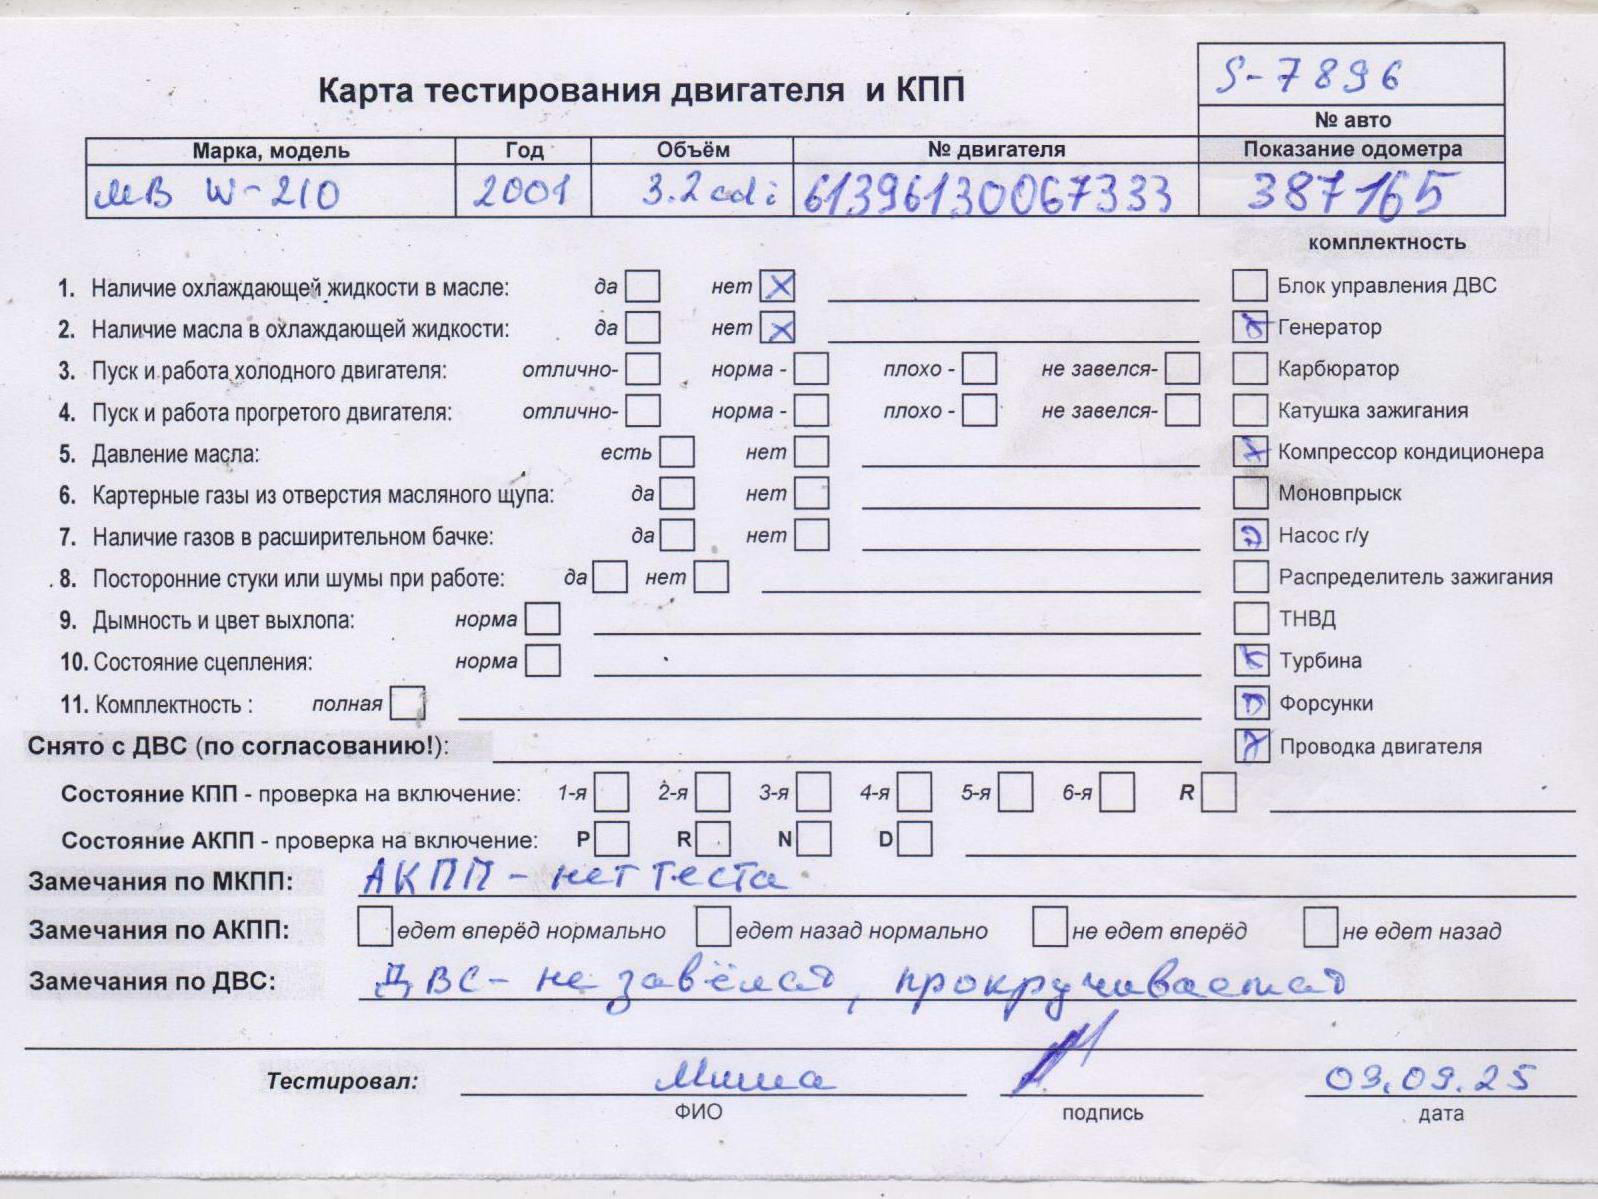 S-7896
Карта тестирования двигателя и КПП
№ авто
Марка, модель Год Объём № двигателя Показание одометра
МВ W-210 2001 3.2 cdi 61396130067333 387165
комплектность
1. Наличие охлаждающей жидкости в масле: да нет X Блок управления ДВС
2. Наличие масла в охлаждающей жидкости: да нет X Генератор
3. Пуск и работа холодного двигателя: отлично- норма - плохо - не завелся- Карбюратор
4. Пуск и работа прогретого двигателя: отлично- норма - плохо - не завелся- Катушка зажигания
5. Давление масла: есть нет Компрессор кондиционера
6. Картерные газы из отверстия масляного щупа: да нет Моновпрыск
7. Наличие газов в расширительном бачке: да нет Насос г/у
8. Посторонние стуки или шумы при работе: да нет Распределитель зажигания
9. Дымность и цвет выхлопа: норма ТНВД
10. Состояние сцепления: норма Турбина
11. Комплектность : полная Форсунки
Снято с ДВС (по согласованию!): Проводка двигателя
Состояние КПП - проверка на включение: 1-я 2-я 3-я 4-я 5-я 6-я R
Состояние АКПП - проверка на включение: P R N D
Замечания по МКПП: АКПП - нет теста
Замечания по АКПП: едет вперёд нормально едет назад нормально не едет вперёд не едет назад
Замечания по ДВС: ДВС - не завёлся, прокручивается
Тестировал: Миша 09.09.25
ФИО подпись дата